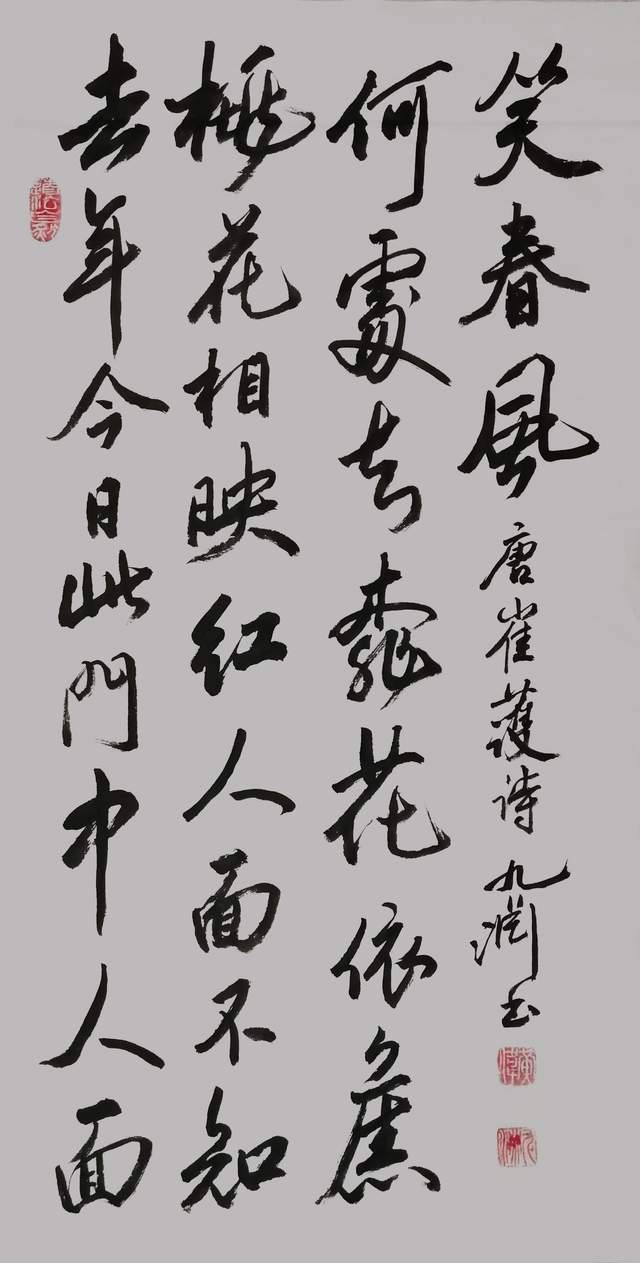 去年今日此門中人面
桃花相映红人面不知
何處去桃花依舊
笑春風
唐崔護詩 九书